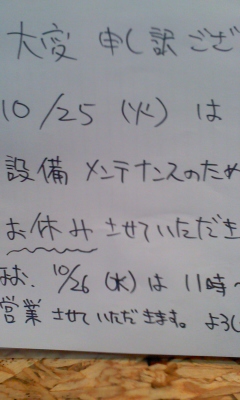 大変 申し訳ござ
10/25 (火) は
設備 メンテナンスのため
お休み させていただき
なお、10/26 (水) は 11時〜
営業 させていただきます。 よろし